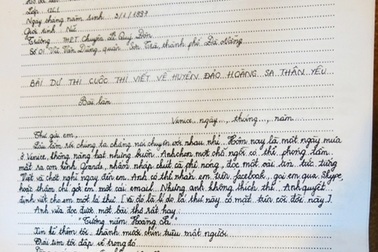 Lớp: 12C1
Ngày tháng năm sinh: 3/1/1997
Giới tính: Nữ
Trường THPT Chuyên Lê Quý Đôn
Số 01 Vũ Văn Dũng, quận Sơn Trà, thành phố Đà Nẵng
BÀI DỰ THI CUỘC THI VIẾT VỀ HUYỆN ĐẢO HOÀNG SA THÂN YÊU
Bài làm
Venice, ngày... tháng... năm...
Thư gửi em,
Đã lâm rồi chúng ta chẳng nói chuyện với nhau nhỉ. Hôm nay là một ngày mưa
ở Venice, tháng năng hạt nhưng buồn. Anh chọn một chỗ ngồi có thể phóng tầm
mắt ra con kênh Grande, nhâm nhấp chút cà phê nóng, đọc một vài tin tức
Việt và chợt nghĩ ngay đến em. Anh có thể nhắn em trên facebook, gọi em qua Skype,
hoặc thậm chí gởi em một cái email. Nhưng anh không thích thế. Anh quyết
định viết cho em một lá thư (và đó là lí do lá thư này có mặt trên cõi đời này).
Anh vừa đọc được một bài thơ rất hay.
"Tướng năm Hoàng Sa
Xin kể thêm tôi, thành mười chín triệu một người
Đời sim tôi đập vì trong đó